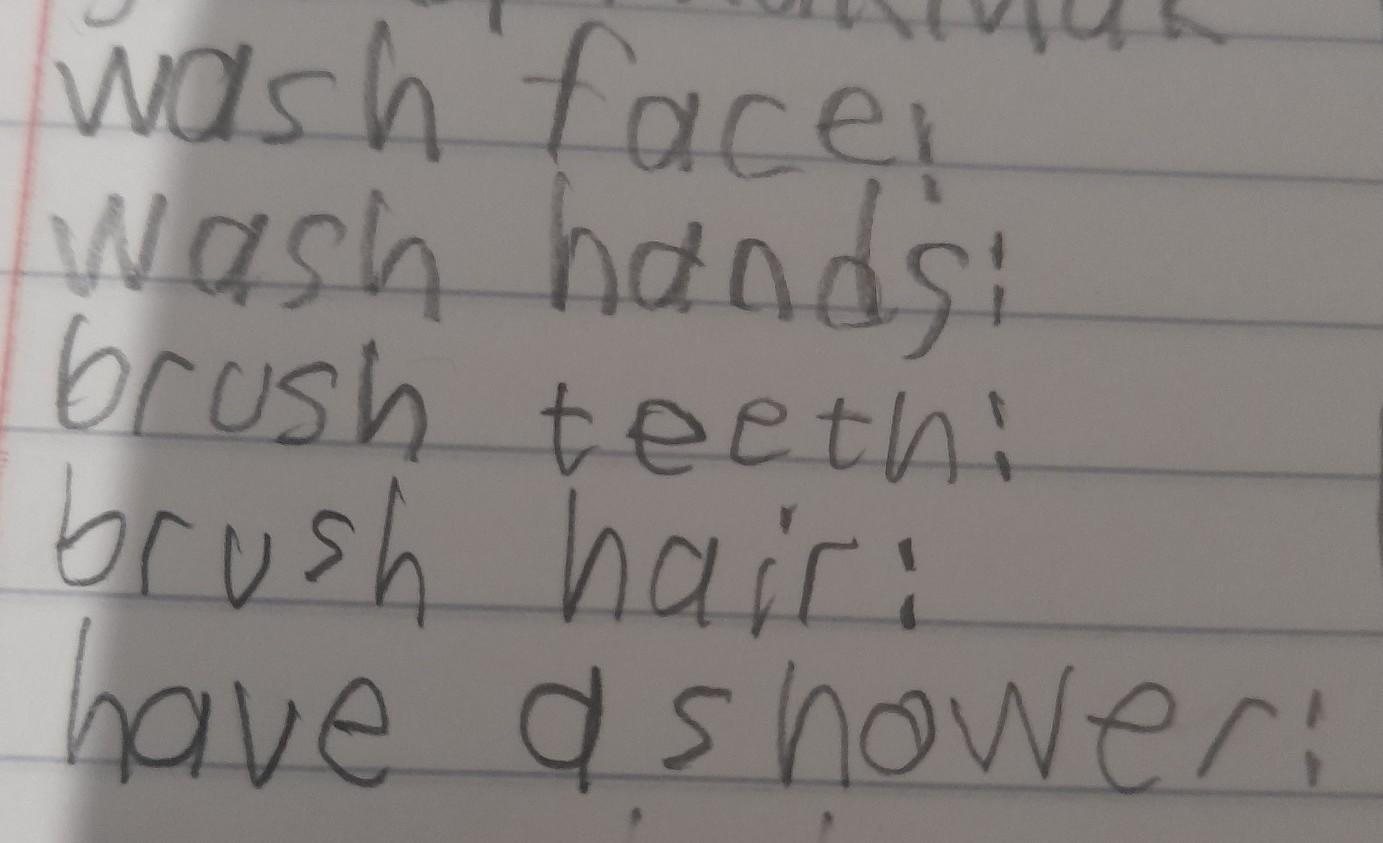 wash face:
wash hands:
brush teeth:
brush hair:
have a shower: